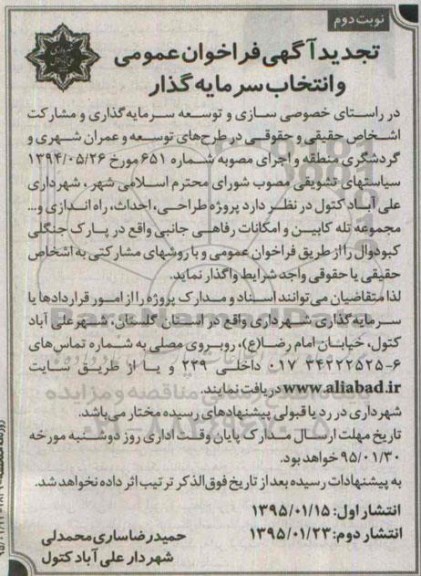 نوبت دوم
تجدید آگهی فراخوان عمومی
و انتخاب سرمایه گذار
در راستای خصوصی سازی و توسعه سرمایه‌گذاری و مشارکت
اشخاص حقیقی و حقوقی در طرح‌های توسعه و عمران شهری و
گردشگری منطقه و اجرای مصوبه شماره ۶۵۱ مورخ ۱۳۹۴/۰۵/۲۶
سیاستهای تشویقی مصوب شورای محترم اسلامی شهر، شهرداری
علی آباد کتول در نظر دارد پروژه طراحی، احداث، راه اندازی و...
مجموعه تله کابین و امکانات رفاهی جانبی واقع در پارک جنگلی
کبودوال را از طریق فراخوان عمومی و با روشهای مشارکتی به اشخاص
حقیقی یا حقوقی واجد شرایط واگذار نماید.
لذا متقاضیان می‌توانند اسناد و مدارک پروژه را از امور قراردادها یا
سرمایه گذاری شهرداری واقع در استان گلستان، شهر علی آباد
کتول، خیابان امام رضا(ع)، روبروی مصلی به شماره تماس‌های
۶-۳۴۲۲۲۵۲۵ ۰۱۷ داخلی ۲۳۹ و یا از طریق سایت
www.aliabad.ir دریافت نمایند.
شهرداری در رد یا قبولی پیشنهادهای رسیده مختار می‌باشد.
تاریخ مهلت ارسال مدارک پایان وقت اداری روز دوشنبه مورخه
۹۵/۰۱/۳۰ خواهد بود.
به پیشنهادات رسیده بعد از تاریخ فوق الذکر ترتیب اثر داده نخواهد شد.
انتشار اول: ۱۳۹۵/۰۱/۱۵
انتشار دوم: ۱۳۹۵/۰۱/۲۳
حمیدرضا ساری محمدلی
شهردار علی آباد کتول